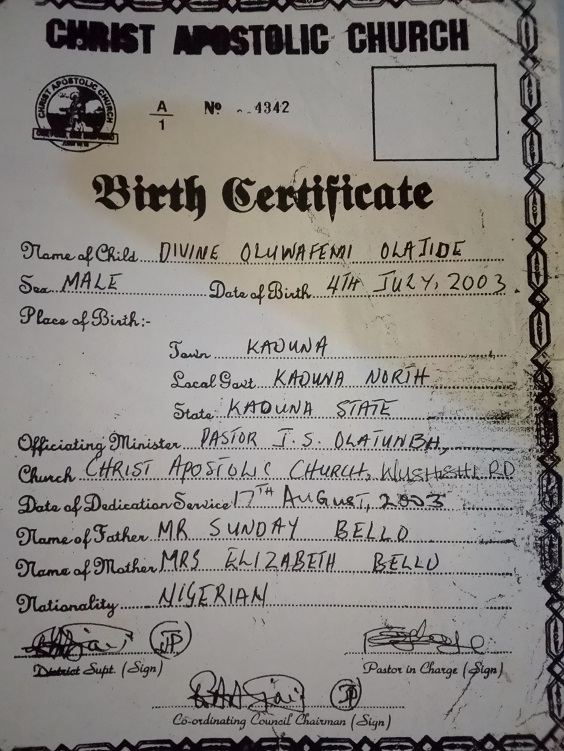 CHRIST APOSTOLIC CHURCH
CHRIST APOSTOLIC CHURCH
A/1 Nº 4342
Birth Certificate
Name of Child DIVINE OLUWAFEMI OLAJIDE
Sex MALE Date of Birth 4TH JULY, 2003
Place of Birth:-
Town KADUNA
Local Govt KADUNA NORTH
State KADUNA STATE
Officiating Minister PASTOR J. S. OLATUNBH,
Church CHRIST APOSTOLIC CHURCH, WUSHISHI RD
Date of Dedication Service 17TH AUGUST, 2003
Name of Father MR SUNDAY BELLO
Name of Mother MRS ELIZABETH BELLO
Nationality NIGERIAN
JP
District Supt. (Sign) Pastor in Charge (Sign)
JP
Co-ordinating Council Chairman (Sign)